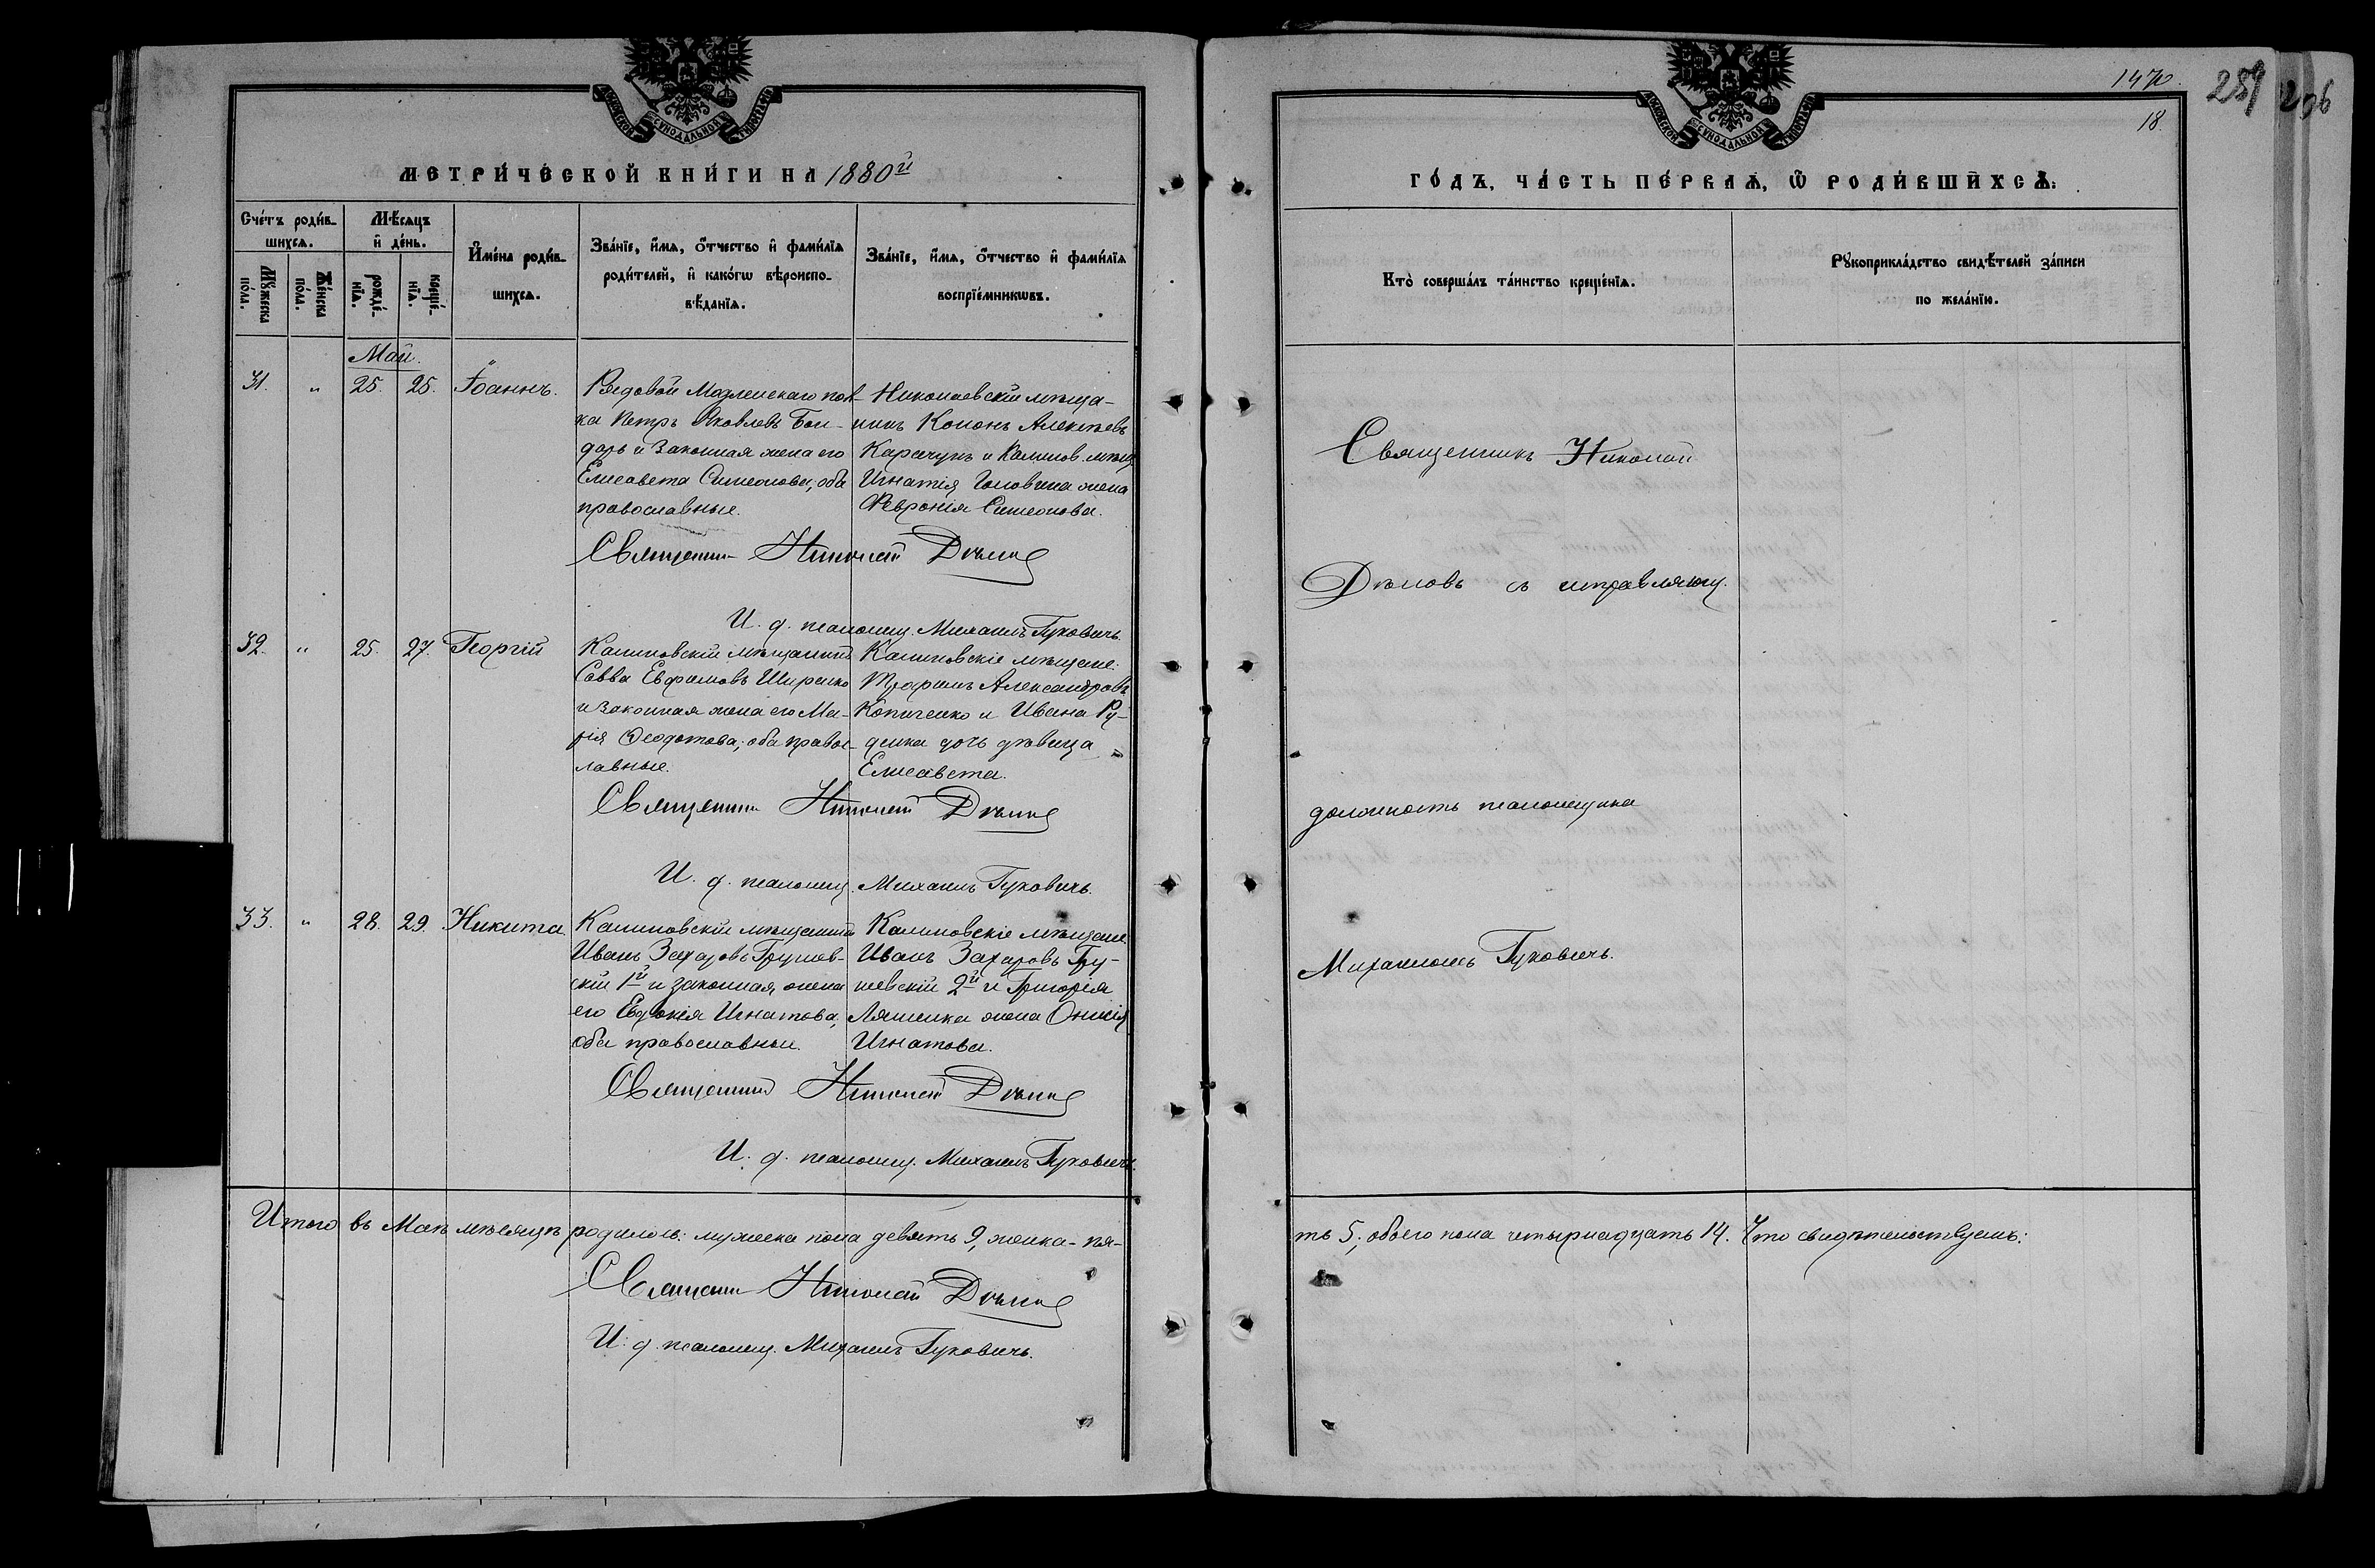 МОСКОВСКОЙ СѴНОДАЛЬНОЙ ТИПОГРАФІИ
МЕТРИ́ЧЕСКОЙ КНИ́ГИ НА 1880й
Сче́тъ роди́в-
шихсѧ.
Мѣ́сяцъ
и҆ де́нь.
Мꙋ́жеска
по́ла.
Же́нска
по́ла.
рожде́-
нїѧ.
креще́-
нїѧ.
И҆мена̀ роди́в-
шихсѧ.
Зва́нїе, и҆́мѧ, ѻ҆́тчество и҆ фами́лїѧ
роди́телей, и҆ како́гѡ вѣроиспо-
вѣ́данїѧ.
Зва́нїе, и҆́мѧ, ѻ҆́тчество и҆ фами́лїѧ
воспрїе́мникѡвъ.
Май.
31. " 25. 25. Іоаннъ.
Рядовой Модленскаго пол-
ка Петръ Яковлевъ Бон-
дарь и законная жена его
Елисавета Симеонова; оба
православные.
Николаевскій мѣща-
нинъ Кононъ Алексѣевъ
Карачунъ и Калинов. мѣщ.
Игнатія Головина жена
Февронія Симеонова.
Священникъ Николай
И. д. псаломщ. Михаилъ Гуковичъ.
32. " 25. 27. Георгій
Калиновскій мѣщанинъ
Савва Евфимовъ Ширенко
и законная жена его Ма-
рія Ѳеодотова; оба правос-
лавные.
Калиновскіе мѣщане:
Трофимъ Александровъ
Копиченко и Ивана Ру-
денка дочь дѣвица
Елисавета.
Священникъ Николай
И. д. псаломщ. Михаилъ Гуковичъ.
33. " 28. 29. Никита
Калиновскій мѣщанинъ
Иванъ Захаровъ Грушев-
скій 1й и законная жена
его Евдокія Игнатова,
оба православные.
Калиновскіе мѣщане
Иванъ Захаровъ Гру-
шевскій 2й и Григорія
Ляшенка жена Онисія
Игнатова.
Священникъ Николай
И. д. псаломщ. Михаилъ Гуковичъ.
Итого въ Маѣ мѣсяцѣ родилось: мужеска пола девять 9, женска - пя-
Священникъ Николай
И. д. псаломщ. Михаилъ Гуковичъ.
1470
289
18.
МОСКОВСКОЙ СѴНОДАЛЬНОЙ ТИПОГРАФІИ
ГО́ДЪ, ЧА́СТЬ ПЕ́РВАѦ, Ѽ РОДИ́ВШИХСѦ:
Кто̀ соверша́лъ та́инство креще́нїѧ.
Рꙋкоприкла́дство свидѣ́телей за́писи
по жела́нїю.
Священникъ Николай
съ исправляющ.
должность псаломщика
Михаиломъ Гуковичъ.
ть 5; обоего пола четырнадцать 14. Что свидѣтельствуемъ: